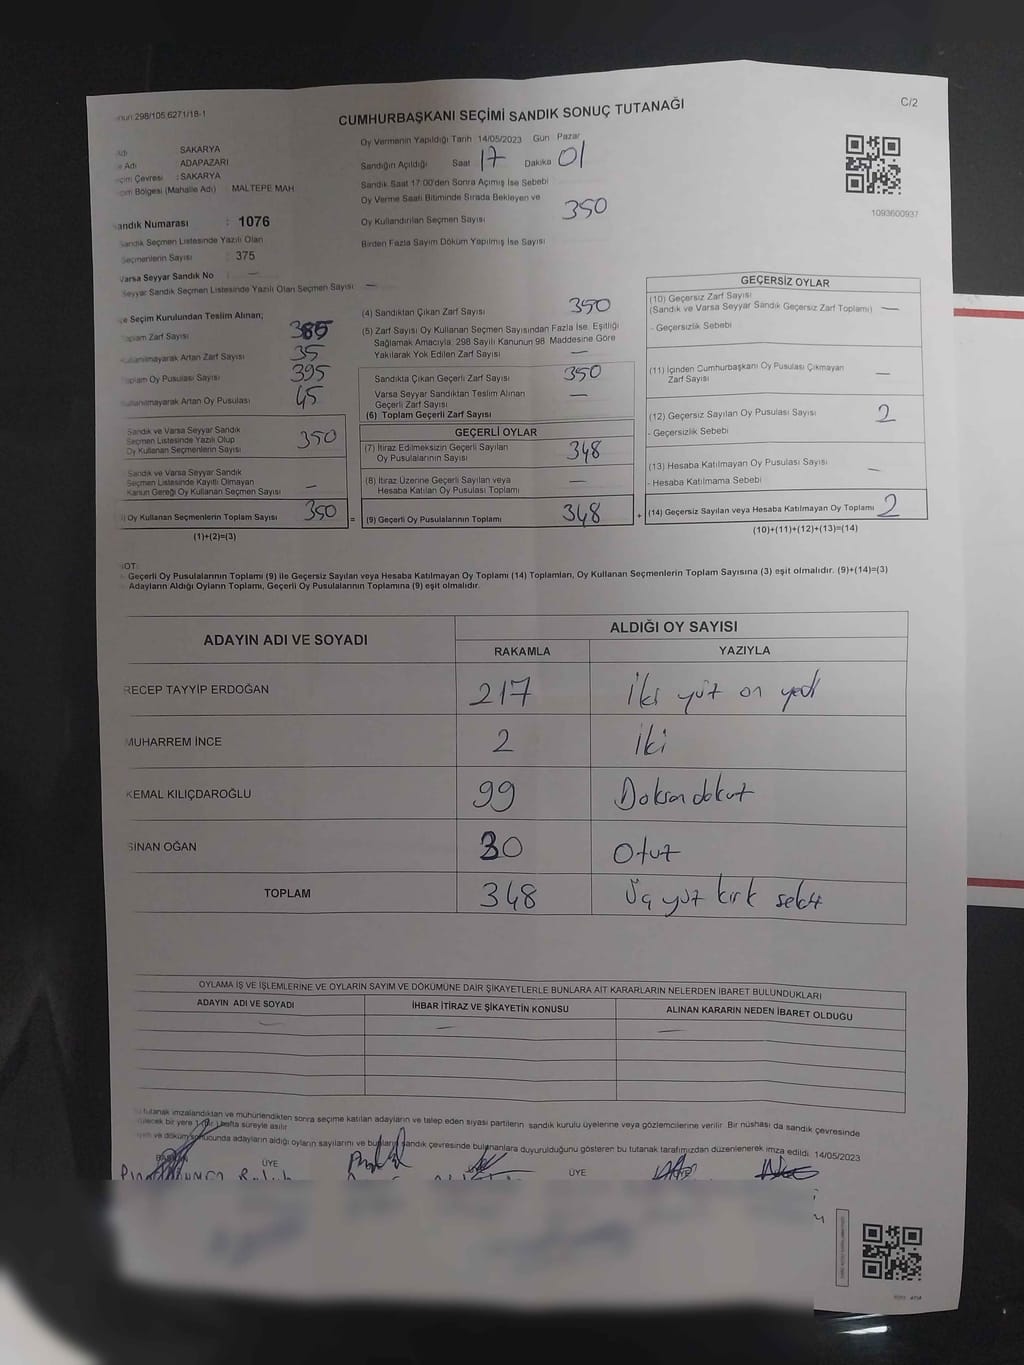 298/105,6271/18-1
CUMHURBAŞKANI SEÇİMİ SANDIK SONUÇ TUTANAĞI
C/2
SAKARYA
Adı ADAPAZARI
Çevresi : SAKARYA
Bölgesi (Mahalle Adı) MALTEPE MAH
Oy Vermenin Yapıldığı Tarih 14/05/2023 Gün Pazar
Sandığın Açıldığı Saat 17 Dakika 01
Sandık Saat 17:00'den Sonra Açımış İse Sebebi
Oy Verme Saati Bitiminde Sırada Bekleyen ve
Oy Kullandırılan Seçmen Sayısı 350
Birden Fazla Sayım Döküm Yapılmış İse Sayısı
1093600937
Sandık Numarası : 1076
Sandık Seçmen Listesinde Yazılı Olan
Seçmenlerin Sayısı : 375
Varsa Seyyar Sandık No —
Seyyar Sandık Seçmen Listesinde Yazılı Olan Seçmen Sayısı —
Seçim Kurulundan Teslim Alınan;
Toplam Zarf Sayısı 385
Kullanılmayarak Artan Zarf Sayısı 35
Toplam Oy Pusulası Sayısı 395
Kullanılmayarak Artan Oy Pusulası 45
Sandık ve Varsa Seyyar Sandık
Seçmen Listesinde Yazılı Olup
Oy Kullanan Seçmenlerin Sayısı 350
Sandık ve Varsa Seyyar Sandık
Seçmen Listesinde Kayıtlı Olmayan
Kanun Gereği Oy Kullanan Seçmen Sayısı —
Oy Kullanan Seçmenlerin Toplam Sayısı 350 =
(1)+(2)=(3)
(4) Sandıktan Çıkan Zarf Sayısı 350
(5) Zarf Sayısı Oy Kullanan Seçmen Sayısından Fazla İse, Eşitliği
Sağlamak Amacıyla, 298 Sayılı Kanunun 98. Maddesine Göre
Yakılarak Yok Edilen Zarf Sayısı —
Sandıkta Çıkan Geçerli Zarf Sayısı 350
Varsa Seyyar Sandıktan Teslim Alınan
Geçerli Zarf Sayısı —
(6) Toplam Geçerli Zarf Sayısı
GEÇERLİ OYLAR
(7) İtiraz Edilmeksizin Geçerli Sayılan
Oy Pusulalarının Sayısı 348
(8) İtiraz Üzerine Geçerli Sayılan veya
Hesaba Katılan Oy Pusulası Toplamı —
(9) Geçerli Oy Pusulalarının Toplamı 348 +
GEÇERSİZ OYLAR
(10) Geçersiz Zarf Sayısı
(Sandık ve Varsa Seyyar Sandık Geçersiz Zarf Toplamı) —
- Geçersizlik Sebebi
(11) İçinden Cumhurbaşkanı Oy Pusulası Çıkmayan
Zarf Sayısı —
(12) Geçersiz Sayılan Oy Pusulası Sayısı 2
- Geçersizlik Sebebi
(13) Hesaba Katılmayan Oy Pusulası Sayısı —
- Hesaba Katılmama Sebebi
(14) Geçersiz Sayılan veya Hesaba Katılmayan Oy Toplamı 2
(10)+(11)+(12)+(13)=(14)
NOT:
Geçerli Oy Pusulalarının Toplamı (9) ile Geçersiz Sayılan veya Hesaba Katılmayan Oy Toplamı (14) Toplamları, Oy Kullanan Seçmenlerin Toplam Sayısına (3) eşit olmalıdır. (9)+(14)=(3)
Adayların Aldığı Oyların Toplamı, Geçerli Oy Pusulalarının Toplamına (9) eşit olmalıdır.
ADAYIN ADI VE SOYADI
ALDIĞI OY SAYISI
RAKAMLA YAZIYLA
RECEP TAYYİP ERDOĞAN 217 İki yüz on yedi
MUHARREM İNCE 2 İki
KEMAL KILIÇDAROĞLU 99 Doksan dokuz
SİNAN OĞAN 30 Otuz
TOPLAM 348 Üç yüz kırk sekiz
OYLAMA İŞ VE İŞLEMLERİNE VE OYLARIN SAYIM VE DÖKÜMÜNE DAİR ŞİKAYETLERLE BUNLARA AİT KARARLARIN NELERDEN İBARET BULUNDUKLARI
ADAYIN ADI VE SOYADI İHBAR İTİRAZ VE ŞİKAYETİN KONUSU ALINAN KARARIN NEDEN İBARET OLDUĞU
— — —
tutanak imzalandıktan ve mühürlendikten sonra seçime katılan adayların ve talep eden siyasi partilerin sandık kurulu üyelerine veya gözlemcilerine verilir. Bir nüshası da sandık çevresinde
bir yere 1 hafta süreyle asılır
ve döküm sonucunda adayların aldığı oyların sayılarını ve bunların sandık çevresinde bulunanlara duyurulduğunu gösteren bu tutanak tarafımızdan düzenlenerek imza edildi. 14/05/2023
BAŞKAN ÜYE ÜYE